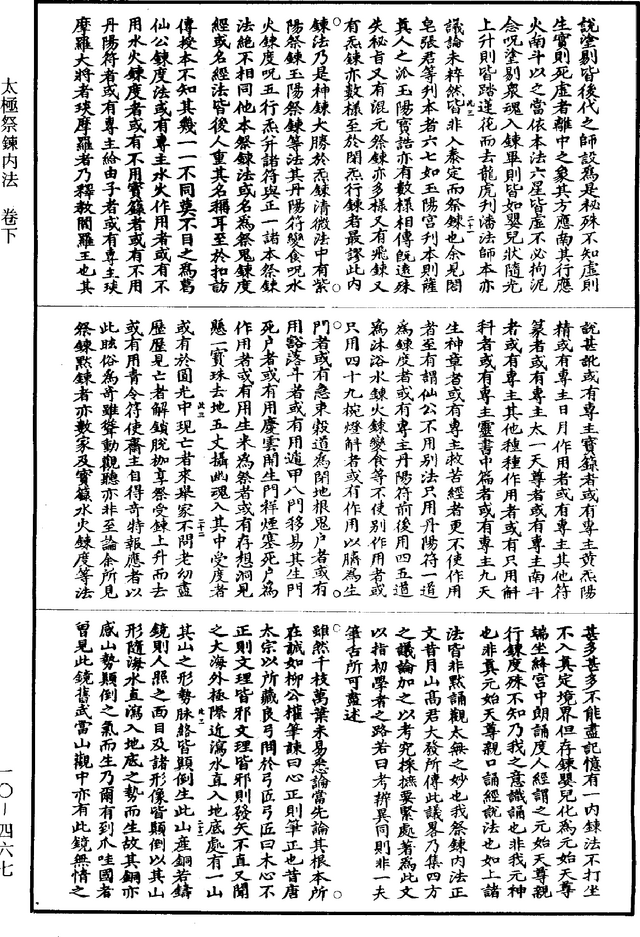 說塗剔皆後代之師設爲是秘殊不知虛則
生實則死虛者離中之象其方應南其行應
火南斗以之當依本法六星皆虛不必拘泥
念呪塗剔衆魂入鍊畢則皆如嬰兒狀隨光
上升則皆踏蓮花而去龍虎刋潘法師本亦
議論未粹然皆非入泰定而祭鍊也余見閤
皂張君等刋本者六七如玉陽宮刋本則薩
真人之派玉陽寶誥亦有數樣相傳旣遠殊
失秘旨又有混元祭鍊亦多樣又有飛鍊又
有炁鍊亦數樣至於閉炁行鍊者最謬此内
鍊法乃是神鍊大勝於炁鍊清微法中有紫
陽祭鍊玉陽祭鍊等法其丹陽符變食呪水
火鍊度呪五行炁升諸符與正一諸本祭鍊
法絶不相同他本祭鍊法或名爲祭鬼鍊度
經或名經法皆後人重其名稱耳至於扣訪
傳授本不知其幾一一不同莫不目之爲葛
仙公鍊度法或有專主水火作用者或有不
用水火鍊度者或有不用寶籙者或有不用
丹陽符者或有專主給由子者或有專主琰
摩羅大將者琰摩羅者乃釋教閻羅王也其
說甚訛或有專主寶籙者或有專主黃炁陽
精或有專主日月作用者或有專主其他符
篆者或有專主太一天尊者或有專主南斗
者或有專主其他種種作用者或有只用斛
科者或有專主靈書中篇者或有專主九天
生神章者或有專主救苦經者更不使作用
者至有謂仙公不用別法只用丹陽符一道
爲鍊度者或有專主丹陽符前後用四五道
爲沐浴水鍊火鍊變食等不使別作用者或
只用四十九椀燈解者或有作用以臍爲生
門者或有急束穀道爲閉地根鬼户者或有
用豁落斗者或有用遁甲八門移易其生門
死户者或有用慶雲開生門祥煙塞死户爲
作用者或有用生米爲祭者或有存想洞見
懸一寶珠去地五丈攝幽魂入其中受度者
或有於圓光中現亡者來舉家不問老幼盡
歷歷見亡者解鎖脫枷享祭受鍊上升而去
或有用青令符使齋主自得奇特報應者以
此眩俗爲奇雖聳動觀聽亦非至論余所見
祭鍊默鍊者亦數家及寶籙水火鍊度等法
甚多甚多不能盡記憶有一内鍊法不打坐
不入真定境界但存鍊嬰兒化爲元始天尊
端坐絳宮中朗誦度人經謂之元始天尊親
行鍊度殊不知乃我之意識誦也非我元神
也非真元始天尊親口誦經說法也如上諸
法皆非默誦觀太無之妙也我祭鍊内法正
文昔月山高君大發所傳此議畧乃集四方
之議論加之以考究採摭要緊處著爲此文
以指初學者之路若曰考辨異同則非一夫
筆舌所可盡述
雖然千枝萬葉未易悉論當先論其根本所
在誠如柳公權筆諫曰心正則筆正也昔唐
太宗以所藏良弓問於弓匠弓匠曰木心不
正則文理皆邪文理皆邪則發矢不直又聞
之大海外極際近瀉水直入地底處有一山
其山之形勢脉絡皆顛倒生此山產銅若鑄
鏡則人照之面目及諸形像皆顛倒以其山
形隨海水直瀉入地底之勢而生故其銅亦
感山勢顛倒之氣而生乃爾有到爪哇國者
曾見此鏡舊武當山觀中亦有此鏡無情之
太極祭鍊内法 卷下
一〇—四六七